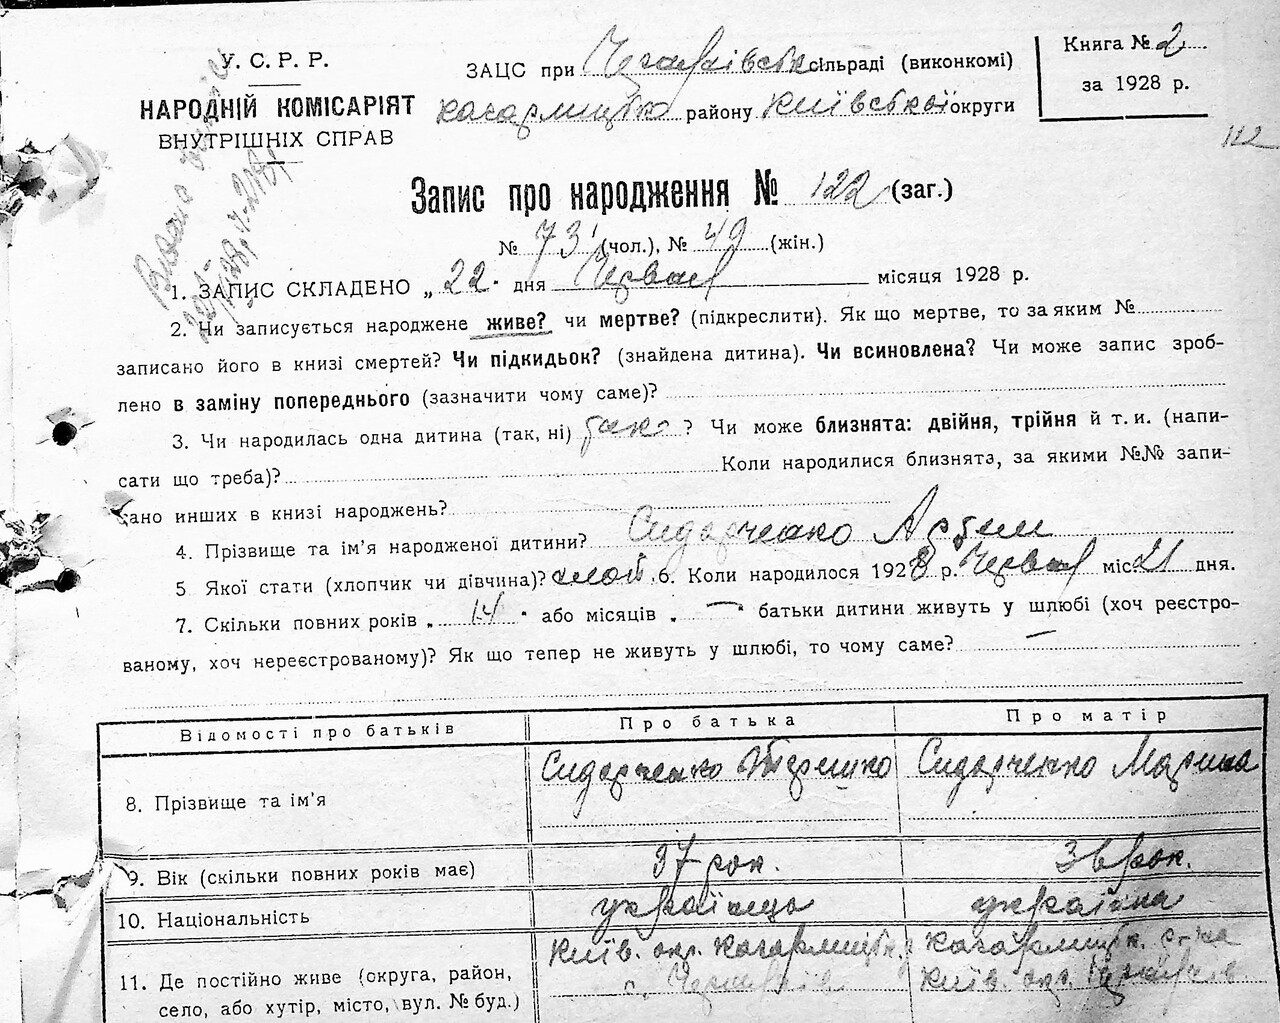 У. С. Р. Р.
НАРОДНІЙ КОМІСАРІЯТ
ВНУТРІШНІХ СПРАВ
ЗАЦС при сільраді (виконкомі)
Кагарлицьк району Київської округи
Книга № 2
за 1928 р.
112
Запис про народження № 122 (заг.)
№ 73 (чол.), № 49 (жін.)
1. ЗАПИС СКЛАДЕНО „ 22 " дня Червня місяця 1928 р.
2. Чи записується народжене живе? чи мертве? (підкреслити). Як що мертве, то за яким №
записано його в книзі смертей? Чи підкидьок? (знайдена дитина). Чи всиновлена? Чи може запис зроб-
лено в заміну попереднього (зазначити чому саме)?
3. Чи народилась одна дитина (так, ні) так ? Чи може близнята: двійня, трійня й т. и. (напи-
сати що треба)? Коли народилися близнята, за якими №№ запи-
сано инших в книзі народжень?
4. Прізвище та ім'я народженої дитини? Сидорченко Артем
5 Якої стати (хлопчик чи дівчина)? 6. Коли народилося 1928 р. Червня міс 21 дня.
7. Скільки повних років „ 14 " або місяців „ — " батьки дитини живуть у шлюбі (хоч реєстро-
ваному, хоч нереєстрованому)? Як що тепер не живуть у шлюбі, то чому саме? —
Відомості про батьків Про батька Про матір
8. Прізвище та ім'я Сидорченко Терешко Сидорченко Марина
9. Вік (скільки повних років має) 37 рок. 36 рок.
10. Національність українець українка
11. Де постійно живе (округа, район,
село, або хутір, місто, вул. № буд.)
Київ. окр. Кагарлицьк.
с.
Кагарлицьк. р-на
Київ. окр.